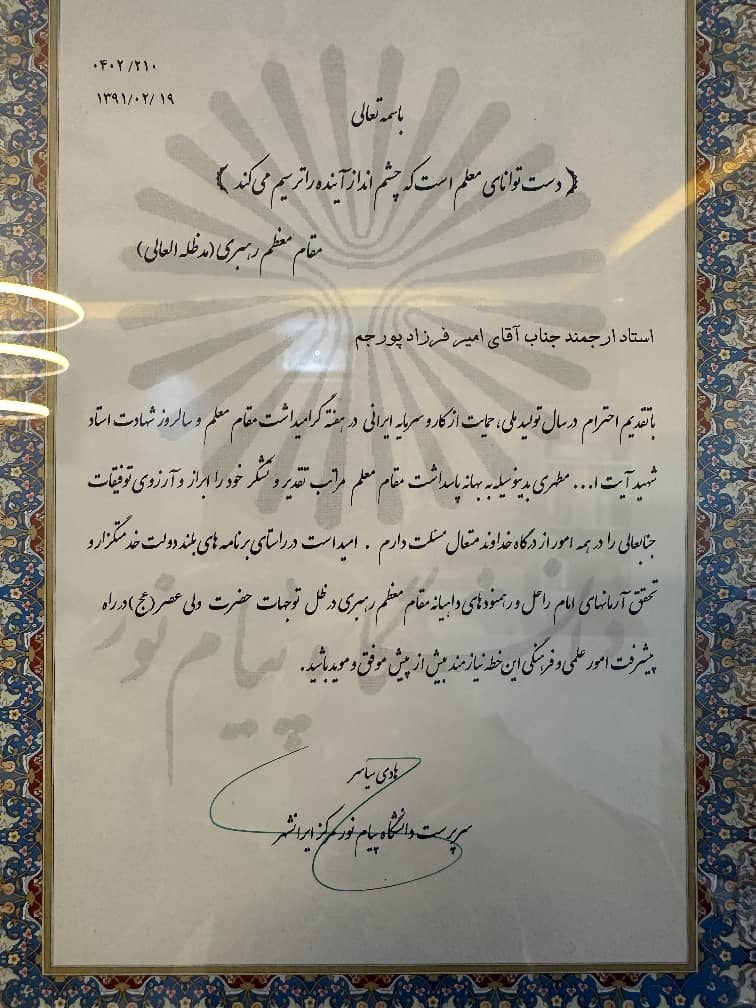 ۰۴۰۲/۲۱۰
۱۳۹۱/۰۲/۱۹
باسمه تعالی
﴿ دست توانای معلم است که چشم انداز آینده را ترسیم می کند ﴾
مقام معظم رهبری (مدظله العالی)
استاد ارجمند جناب آقای امیر فرزاد پورجم
با تقدیم احترام در سال تولید ملی، حمایت از کار و سرمایه ایرانی در هفته گرامیداشت مقام معلم و سالروز شهادت استاد
شهید آیت ا... مطهری بدینوسیله به بهانه پاسداشت مقام معلم مراتب تقدیر و تشکر خود را ابراز و آرزوی توفیقات
جنابعالی را در همه امور از درگاه خداوند متعال مسئلت دارم . امید است در راستای برنامه های بلند دولت خدمتگزار و
تحقق آرمانهای امام راحل و رهنمودهای داهیانه مقام معظم رهبری در ظل توجهات حضرت ولی عصر (عج) در راه
پیشرفت امور علمی و فرهنگی این خطه نیازمند بیش از پیش موفق و موید باشید.
دانشگاه پیام نور
هادی سیاسر
سرپرست دانشگاه پیام نور مرکز ایرانشهر